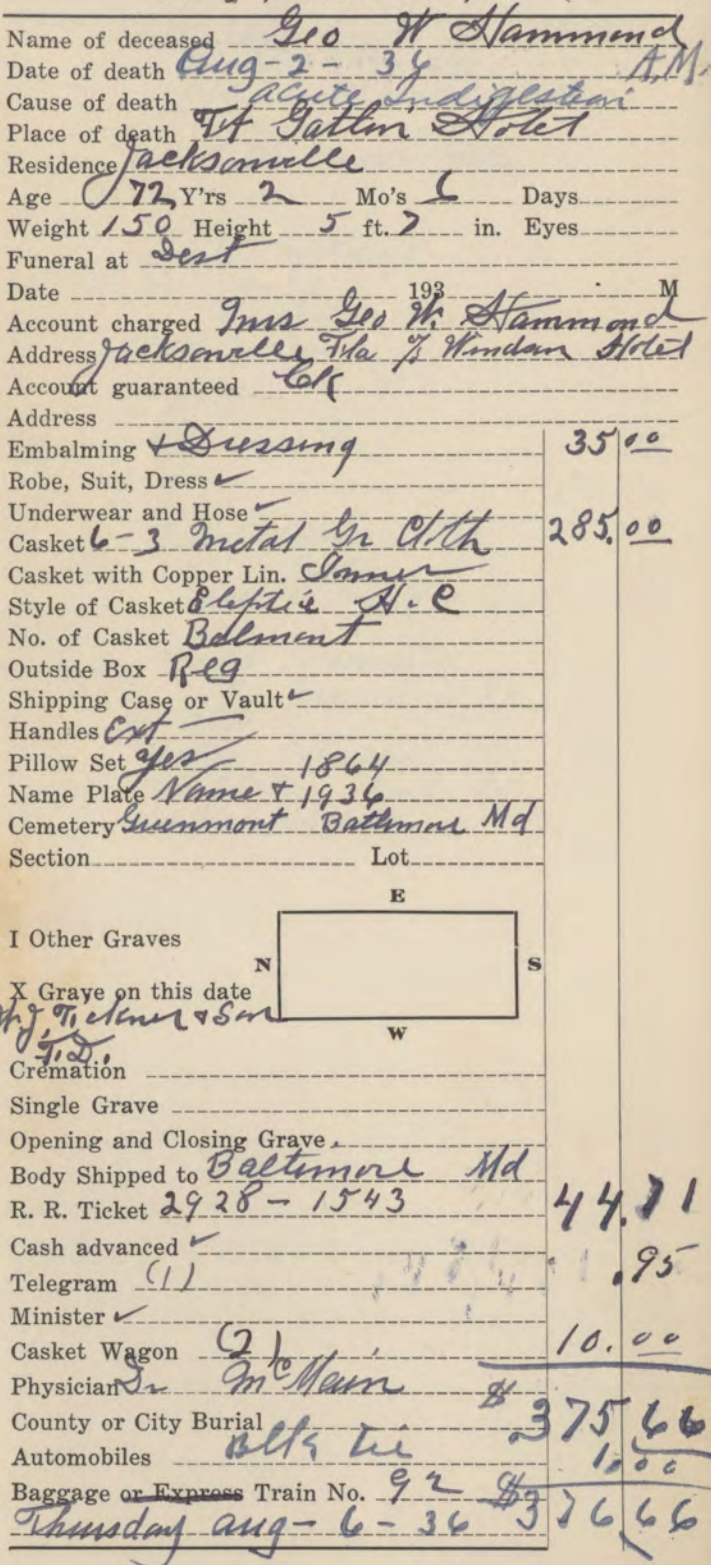 Name of deceased Geo W Hammond
Date of death Aug-2-36 A.M.
Cause of death acute indigestion
Place of death Ft Gatlin Hotel
Residence Jacksonville
Age 72 Y'rs 2 Mo's 6 Days
Weight 150 Height 5 ft. 7 in. Eyes
Funeral at Dest
Date 193 M
Account charged Mrs Geo W. Hammond
Address Jacksonville Fla % Windsor Hotel
Account guaranteed Ck
Address
Embalming + Dressing 35 00
Robe, Suit, Dress ✓
Underwear and Hose ✓
Casket 6-3 Metal Gr Cloth 285.00
Casket with Copper Lin. Inner
Style of Casket Eleptic H.C
No. of Casket Belmont
Outside Box Reg
Shipping Case or Vault ✓
Handles Ext
Pillow Set Yes 1864
Name Plate Name + 1936
Cemetery Greenmount Baltimore Md
Section Lot
E
I Other Graves
N S
X Grave on this date
W
Tickner & Son
F.D.
Cremation
Single Grave
Opening and Closing Grave
Body Shipped to Baltimore Md
R. R. Ticket 2928 - 1543 44.71
Cash advanced ✓
Telegram (1) .95
Minister ✓
Casket Wagon (2) 10.00
Physician Dr McMain
County or City Burial $375 66
Automobiles Blk tie 1.00
Baggage or Express Train No. 92 $376 66
Thursday Aug-6-36